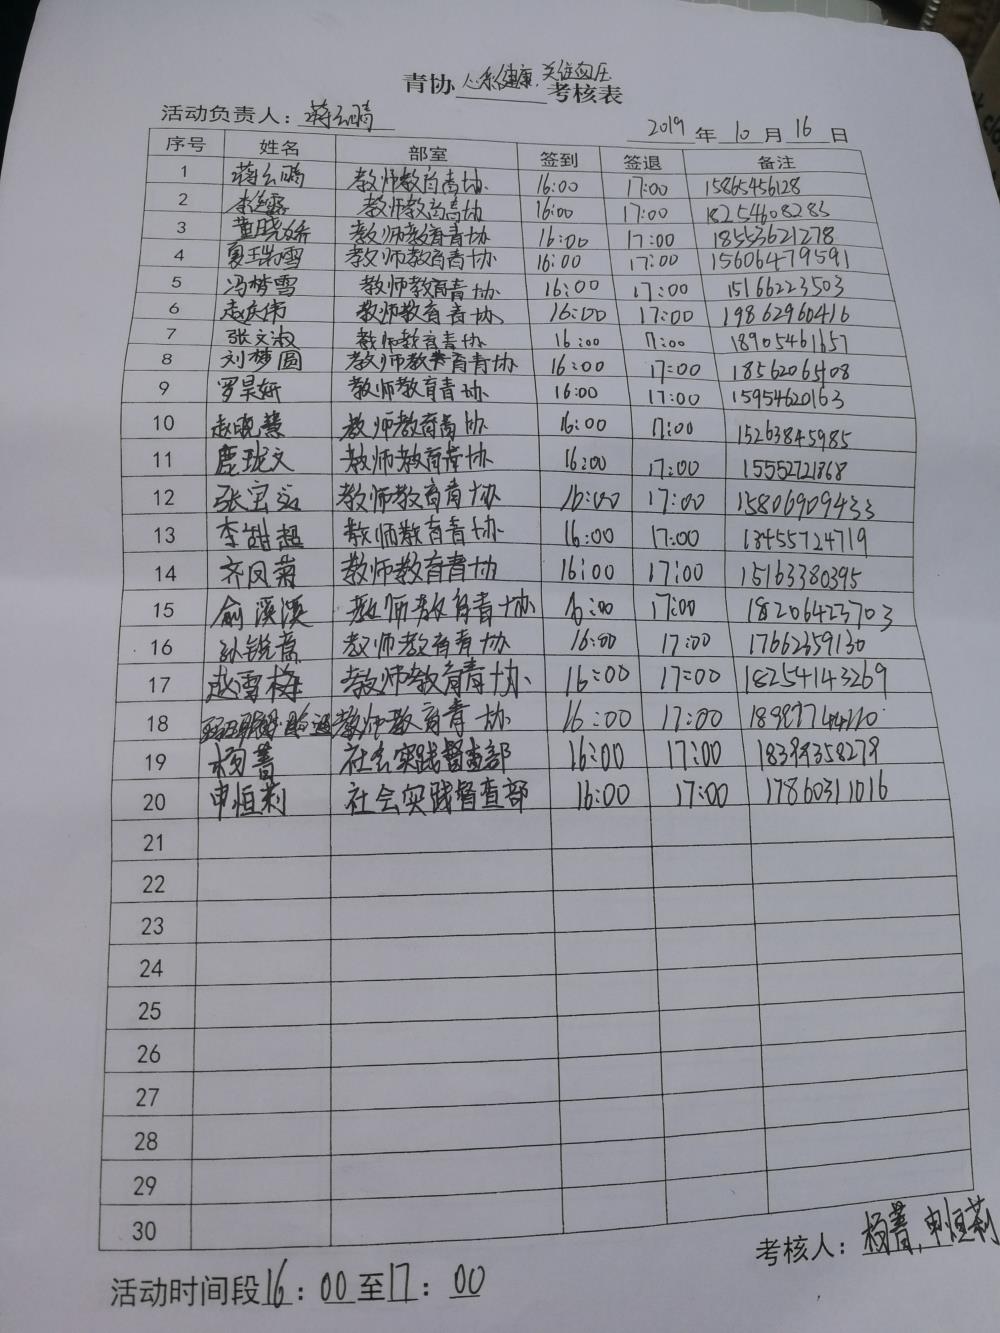 青协心系健康,关注血压考核表
活动负责人：蒋云鹏 2019年10月16日
序号 姓名 部室 签到 签退 备注
1 蒋云鹏 教师教育青协 16:00 17:00 15865456128
2 教师教育青协 16:00 17:00 18254608285
3 黄晓娇 教师教育青协 16:00 17:00 18553621278
4 夏瑞雪 教师教育青协 16:00 17:00 15606479591
5 冯梦雪 教师教育青协 16:00 17:00 15166223503
6 赵庆伟 教师教育青协 16:00 17:00 19862960416
7 张文淑 教师教育青协 16:00 17:00 18905461657
8 刘梦圆 教师教育青协 16:00 17:00 18562065408
9 罗昊妍 教师教育青协 16:00 17:00 15954620163
10 赵晓慧 教师教育青协 16:00 17:00 15263845985
11 鹿珑文 教师教育青协 16:00 17:00 15552721868
12 教师教育青协 16:00 17:00 15806909433
13 李甜超 教师教育青协 16:00 17:00 13455724719
14 齐凤菊 教师教育青协 16:00 17:00 15163380395
15 俞溪溪 教师教育青协 16:00 17:00 18206423703
16 教师教育青协 16:00 17:00 17662359130
17 赵雪梅 教师教育青协 16:00 17:00 18254143269
18 教师教育青协 16:00 17:00
19 杨菁 社会实践督查部 16:00 17:00 18394358279
20 申恒莉 社会实践督查部 16:00 17:00 17860311016
21
22
23
24
25
26
27
28
29
30
考核人：杨菁,申恒莉
活动时间段16：00至17：00